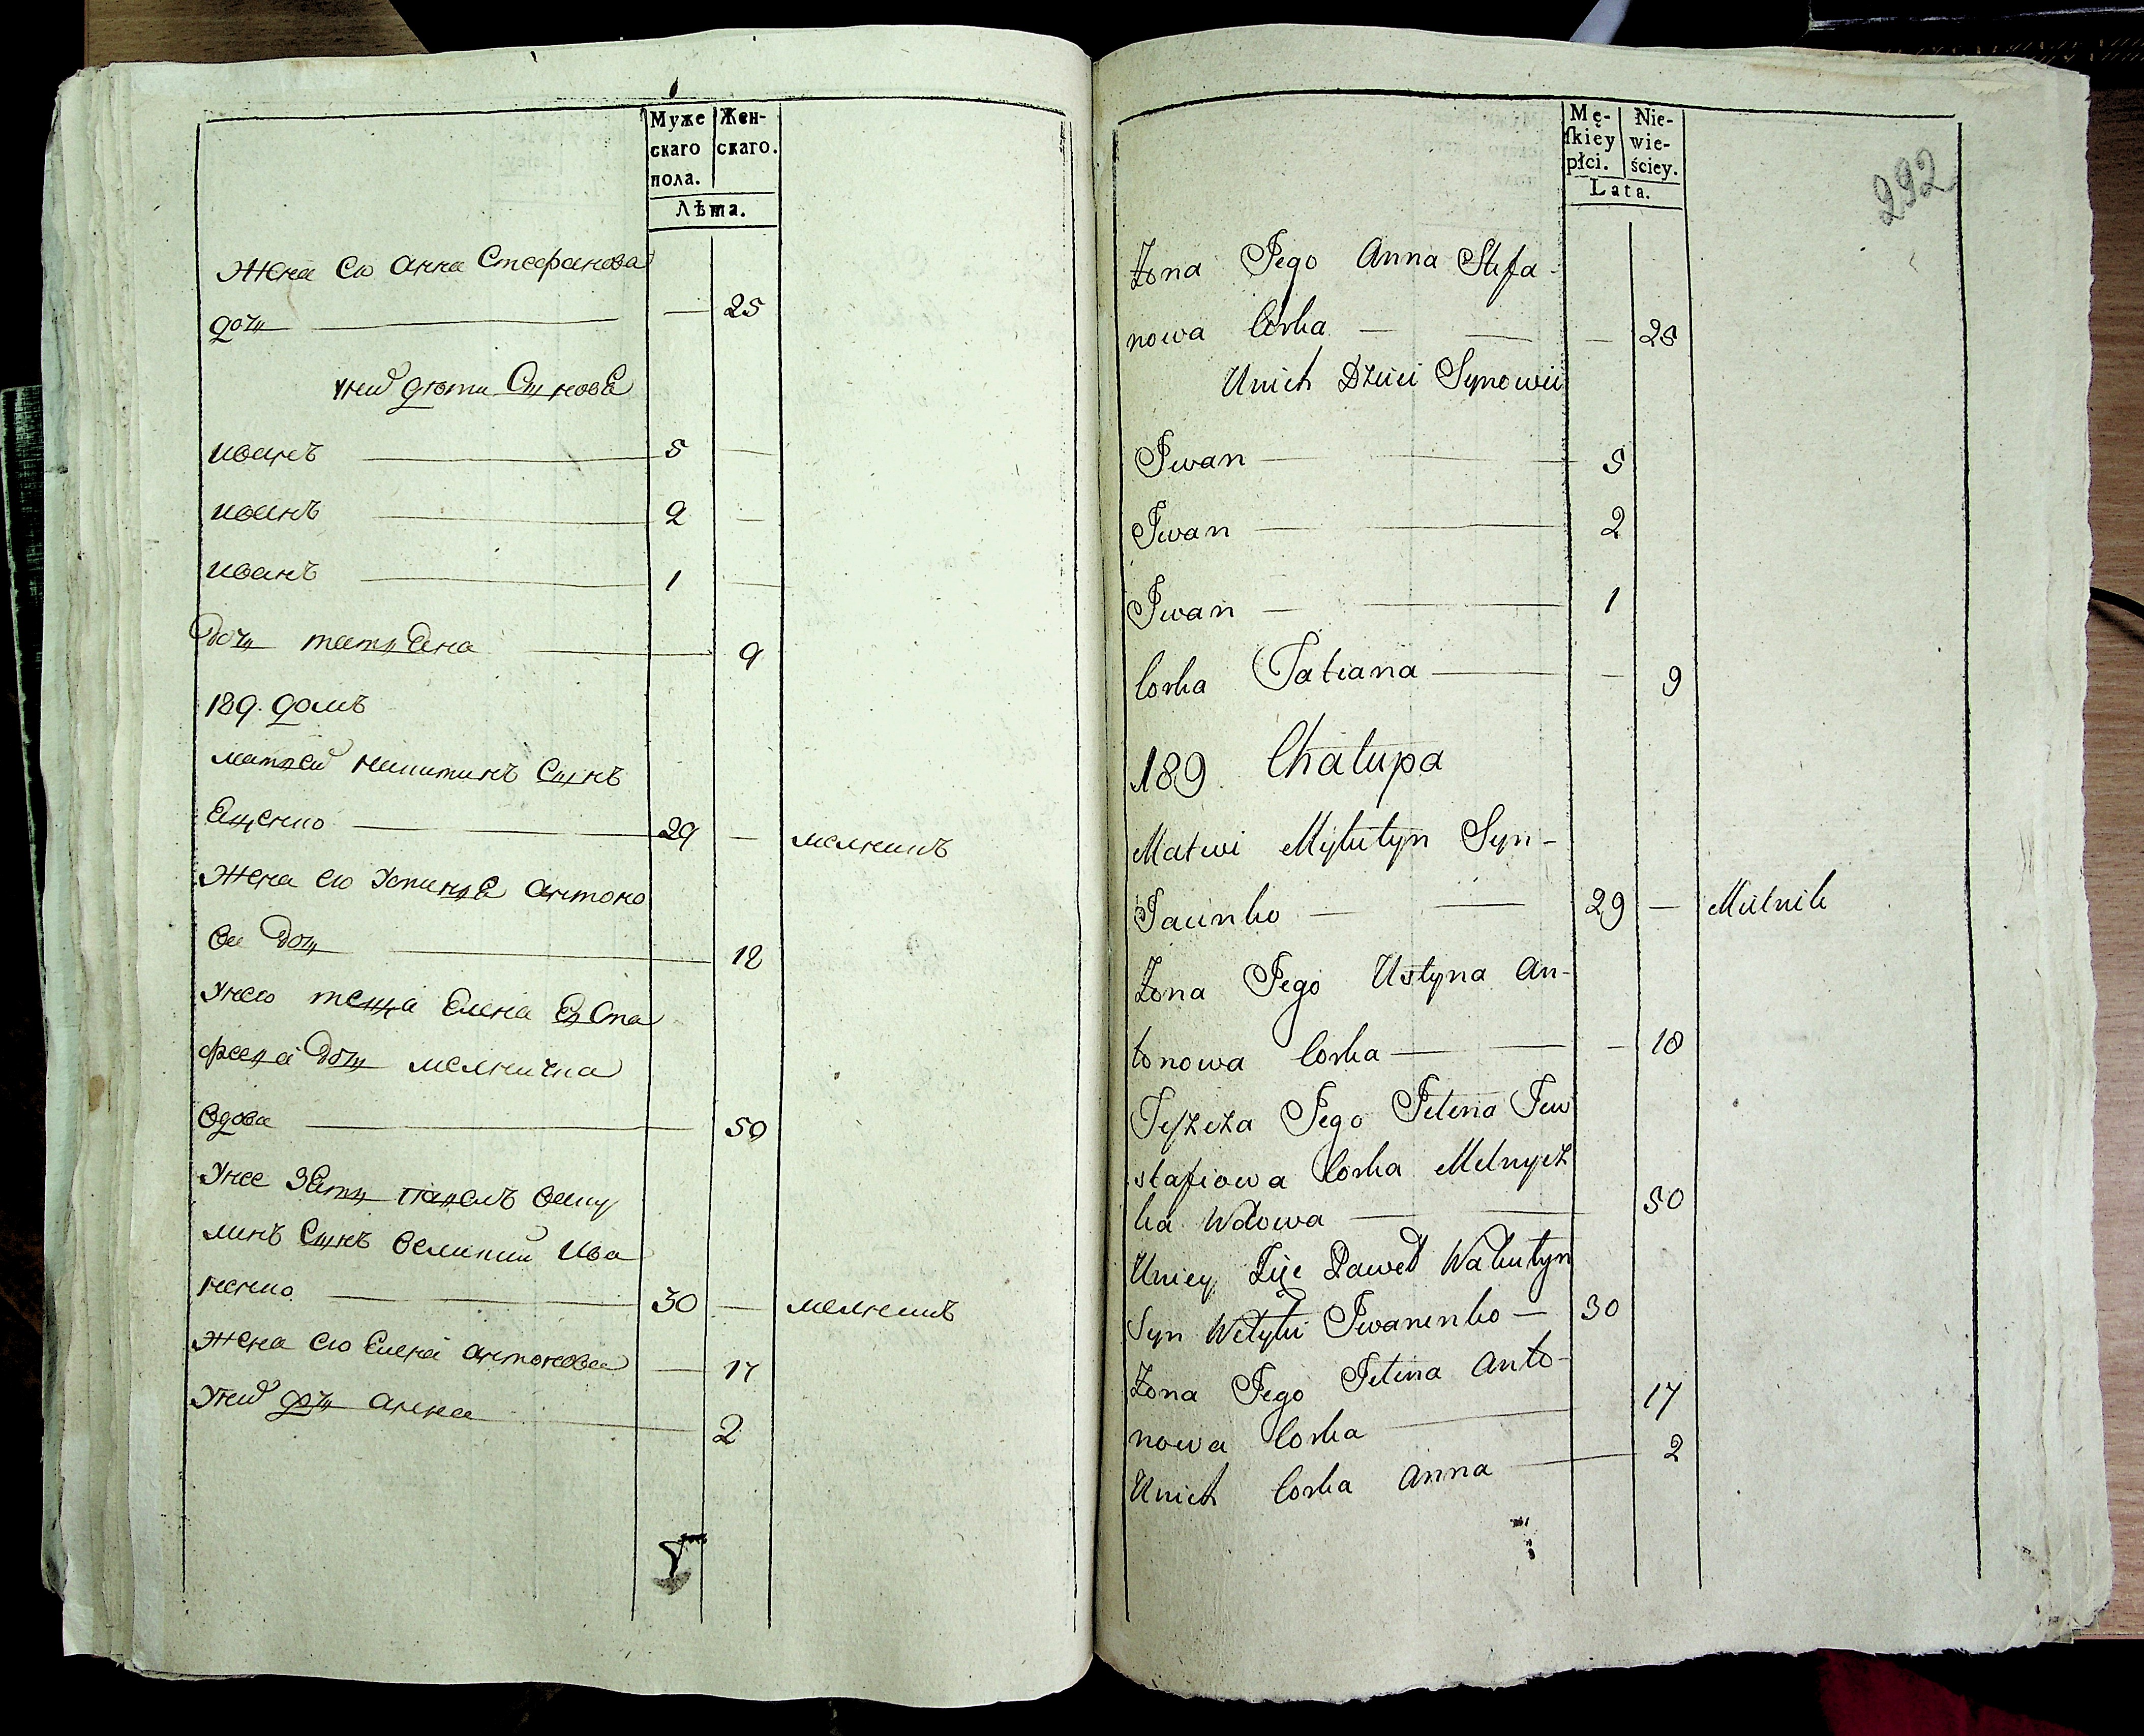 Муже
скаго
пола.
Жен-
скаго.
Лѣта.
Жена его Анна Стефанова
дочь — — 25
у них дѣти Сынове
Иванъ — 5 —
Иванъ — 2 —
Иванъ — 1 —
дочь татьяна — 9
189. домъ
матвей никитинъ Сынъ
Яценко — 29 — мелникъ
Жена его Устинья Антоно
ва дочь — 18
у него теща Елена Евста
фьева дочь мелничка
вдова — 50
у нее Зять павелъ ваку
линъ Сынъ великий Ива
ненко — 30 — мелникъ
Жена его Елена антонова — 17
у них дочь анна — 2
Mę-
ſkiey
płci.
Nie-
wie-
ściey.
Lata.
292
Żona Jego Anna Stefa-
nowa Corka — — — 25
Unich Dzieci Synowie
Iwan — — 5
Iwan — — 2
Iwan — — 1
Corka Tatiana — — 9
189 Chałupa
Matwi Mykityn Syn-
Jacenko — — 29 — Mielnik
Żona Jego Ustyna An-
tonowa Corka — — — 18
Teszcza Jego Jelena Jew
stafiowa Corka Melnycz
ka Wdowa — 50
Uniey Zięć Paweł Wakulyn
Syn Wełyki Iwanenko — 30
Żona Jego Jelena Anto- 17
nowa Corka —
Unich Corka Anna — 2